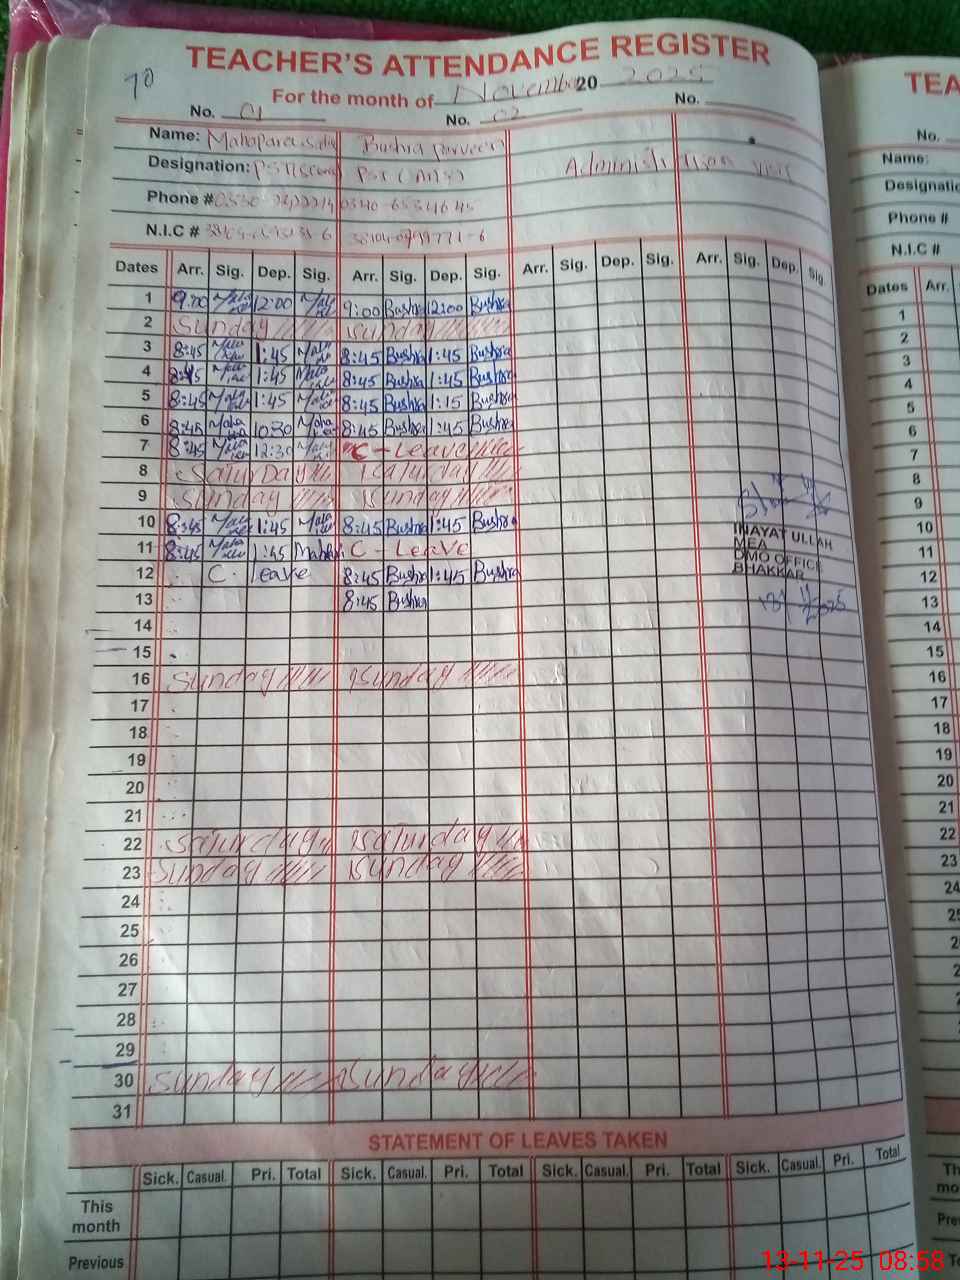 TEACHER'S ATTENDANCE REGISTER
10
For the month of November 20 2025
No. 01 No. 02 No.
Name: Bushra Parveen
Designation: PST Administration Visit
Phone # 0340-6534645
N.I.C #
Dates Arr. Sig. Dep. Sig. Arr. Sig. Dep. Sig. Arr. Sig. Dep. Sig. Arr. Sig. Dep. Sig.
1 9:00 Maha 12:00 Maha 9:00 Bushra 12:00 Bushra
2 Sunday Sunday
3 8:45 Maha 1:45 Maha 8:45 Bushra 1:45 Bushra
4 8:45 Maha 1:45 Maha 8:45 Bushra 1:45 Bushra
5 8:45 Maha 1:45 Maha 8:45 Bushra 1:15 Bushra
6 8:45 Maha 10:30 Maha 8:45 Bushra 1:45 Bushra
7 8:45 Maha 12:30 Maha C-Leave
8 Saturday Saturday
9 Sunday Sunday
10 8:45 Maha 1:45 Maha 8:45 Bushra 1:45 Bushra
11 8:45 Maha 1:45 C-Leave
12 C. leave 8:45 Bushra 1:45 Bushra
13 8:45 Bushra
INAYAT ULLAH
MEA
DMO OFFICE
BHAKKAR
14
15
16 Sunday Sunday
17
18
19
20
21
22 Saturday Saturday
23 Sunday Sunday
24
25
26
27
28
29
30 Sunday Sunday
31
STATEMENT OF LEAVES TAKEN
Sick. Casual. Pri. Total Sick. Casual. Pri. Total Sick. Casual. Pri. Total Sick. Casual. Pri. Total
This month
Previous
TEA
No.
Name:
Designatio
Phone #
N.I.C #
Dates Arr.
1
2
3
4
5
6
7
8
9
10
11
12
13
14
15
16
17
18
19
20
21
22
23
24
13-11-25 08:58